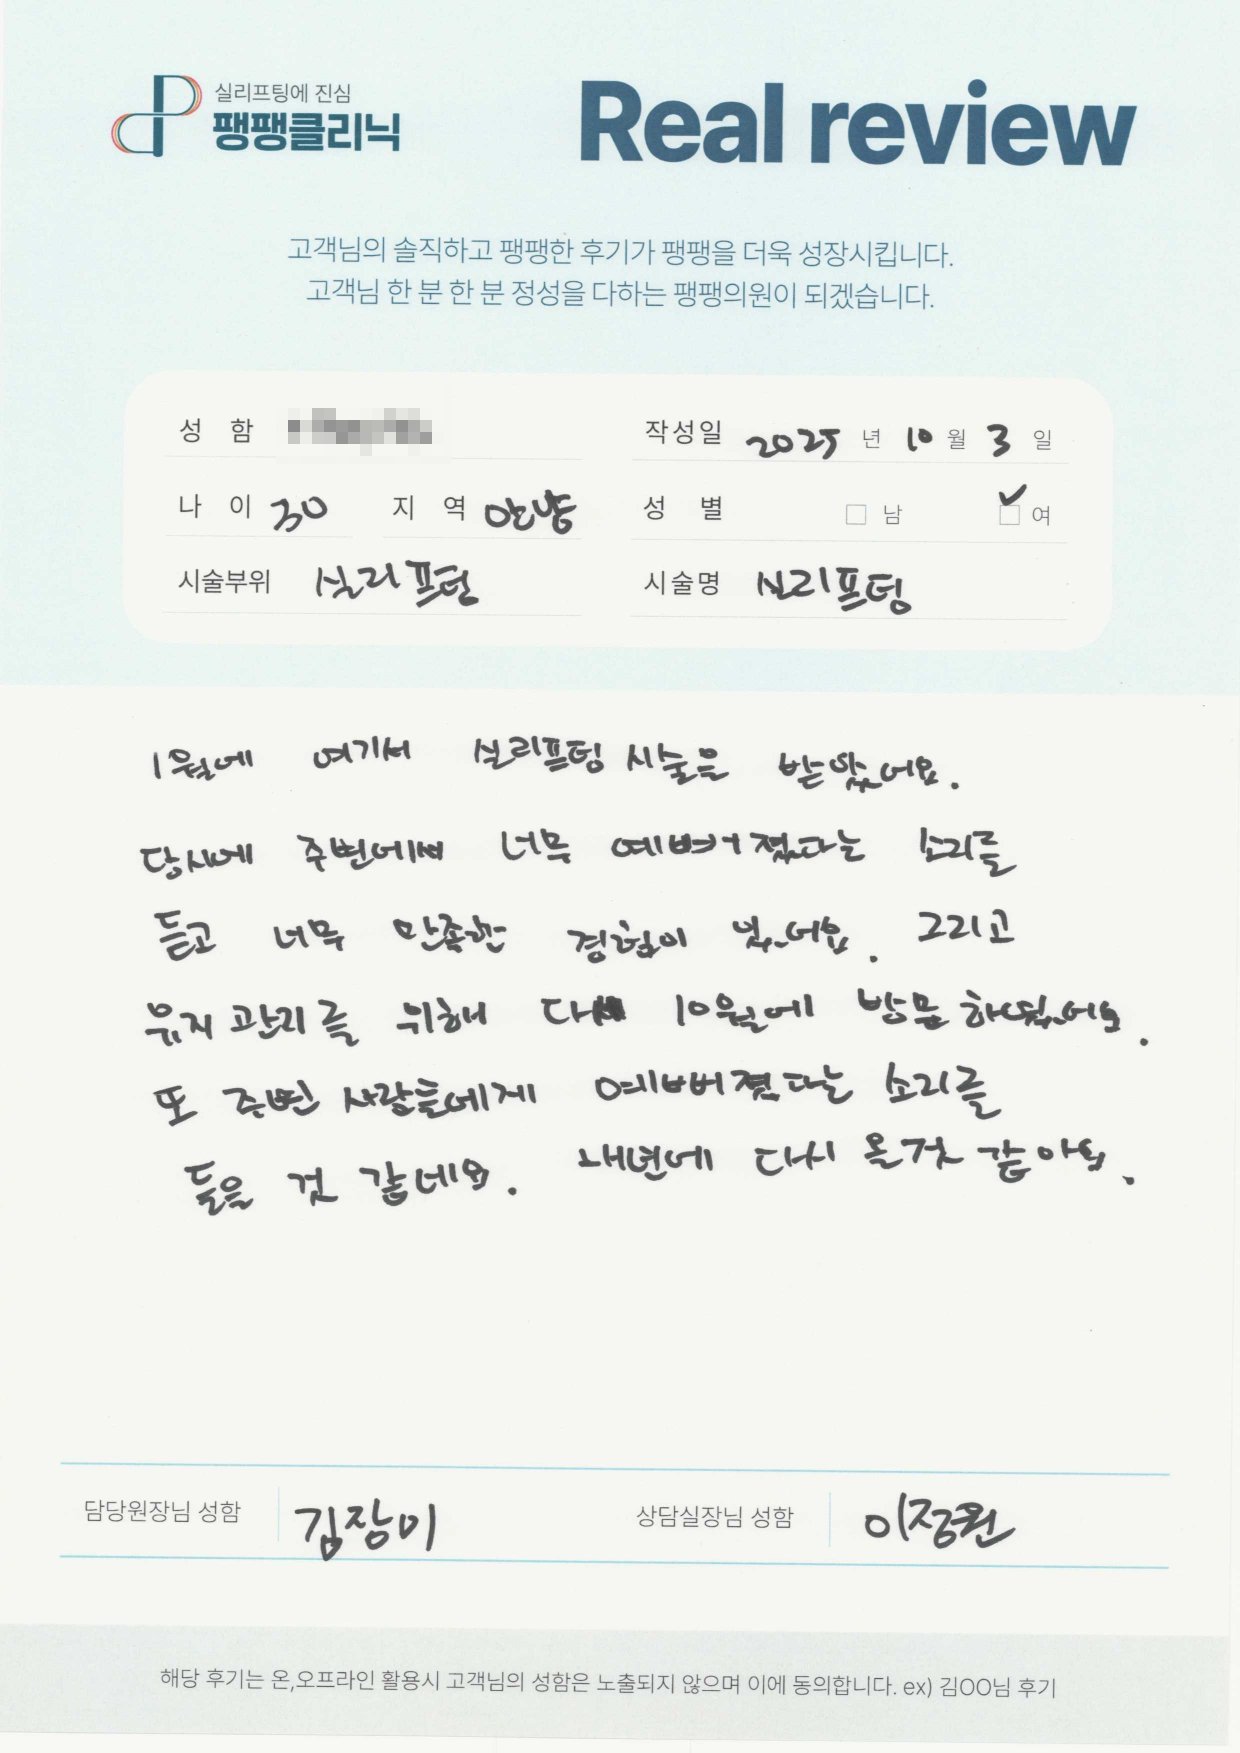 실리프팅에 진심
팽팽클리닉
Real review
고객님의 솔직하고 팽팽한 후기가 팽팽을 더욱 성장시킵니다.
고객님 한 분 한 분 정성을 다하는 팽팽의원이 되겠습니다.
성 함 작성일 2025 년 10 월 3 일
나 이 30 지 역 안양 성 별 남 여
시술부위 실리프팅 시술명 실리프팅
1월에 여기서 실리프팅 시술을 받았어요.
당시에 주변에서 너무 예뻐졌다는 소리를
듣고 너무 만족한 경험이 있어요. 그리고
유지관리를 위해 다시 10월에 방문하였어요.
또 주변 사람들에게 예뻐졌다는 소리를
들을 것 같네요. 내년에 다시 올것 같아요.
담당원장님 성함 김장미 상담실장님 성함 이정원
해당 후기는 온,오프라인 활용시 고객님의 성함은 노출되지 않으며 이에 동의합니다. ex) 김OO님 후기